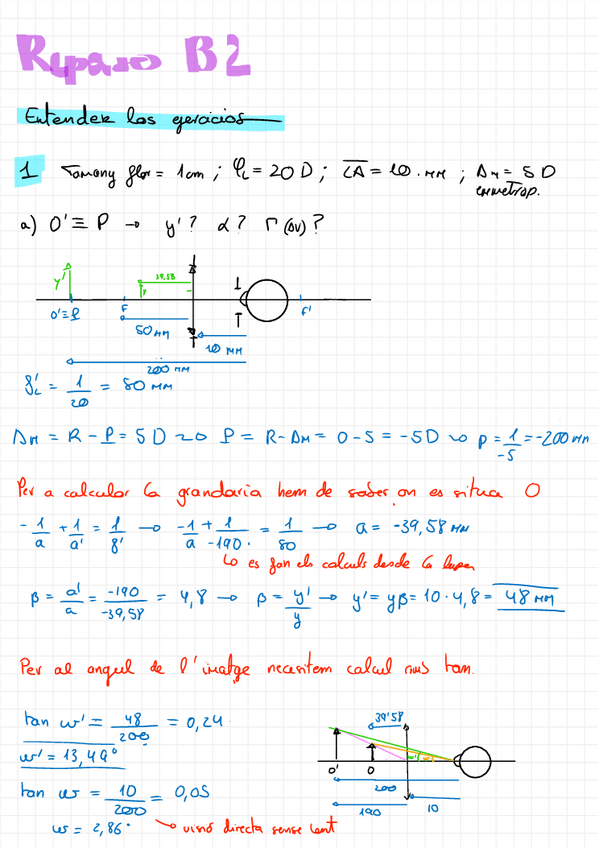 Repaso B2
Entender los ejercicios
1 Tamany flor = 1cm ; φL = 20 D ; LA = 10 mm ; ΔM = 5 D
emmetrop.
a) O' ≡ P → y'? α? Γ(DV)?
y'
39,58
y
O' ≡ P
F
F'
50 mm
10 mm
200 mm
f'L = 1/20 = 50 mm
ΔM = R - P = 5 D → P = R - ΔM = 0 - 5 = -5 D → p = 1/-5 = -200 mm
Per a calcular la grandaria hem de saber on es situa O
-1/a + 1/a' = 1/f' → -1/a + 1/-190 = 1/50 → a = -39,58 mm
Lo es fan els calculs desde la lupa
β = a'/a = -190/-39,58 = 4,8 → β = y'/y → y' = yβ = 10 · 4,8 = 48 mm
Per al angul de l'imatge necesitem calcul tan.
tan w' = 48/200 = 0,24
w' = 13,49°
tan w = 10/200 = 0,05
w = 2,86° → visió directa sense lent
39'58
O'
O
w'
w
200
190
10